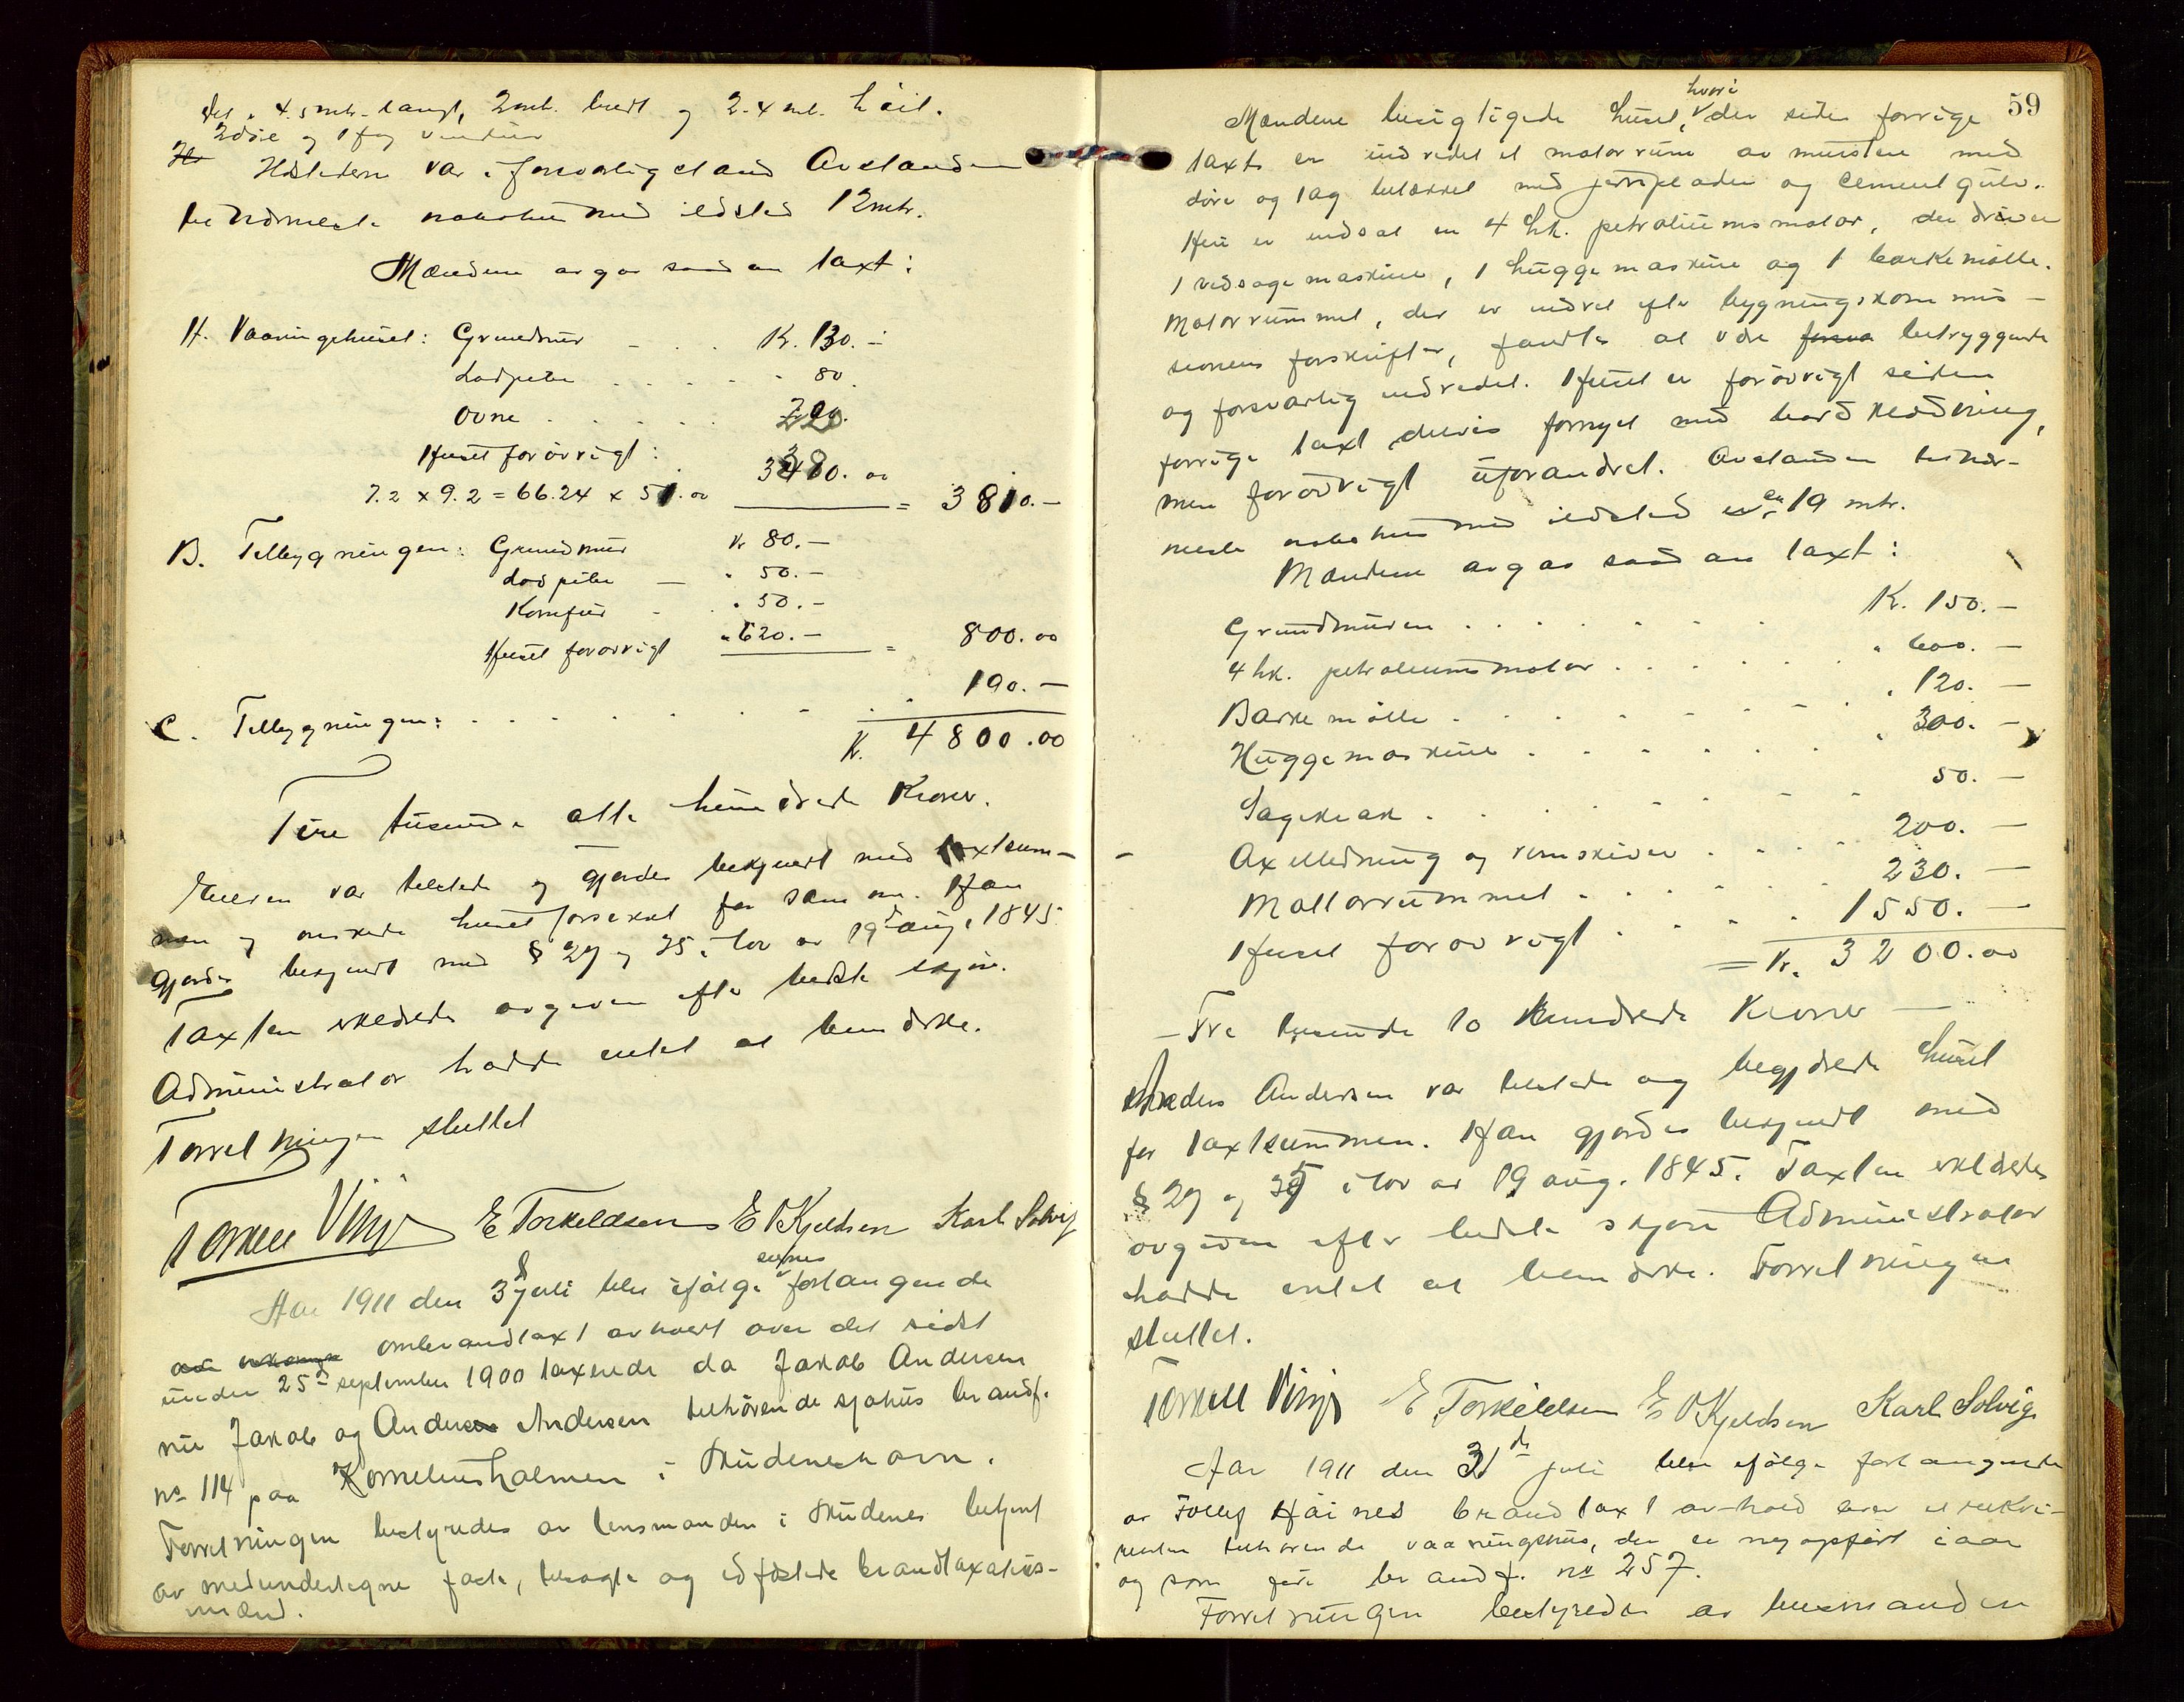 4.5 mtr. langt, 2 mtr. bredt og 2.4 mtr. höit.
2 döre og 1 fag vinduer
Ildstederne var i forsvarlig stand Avstanden
til nærmeste nabohus med ildsted 12 mtr.
Mændene avgav saadan taxt:
A. Vaaningshuset: Grundmur - . . Kr. 130.-
Ladpibe . . . . . " 80.
Ovne . . . . . . 
Huset forövrigt:
7.2 x 9.2 = 66.24 x 51.00 = 3810.-
B. Tilbygningen: Grundmur Kr 80.-
Ladpibe - " 50.-
Komfur - . " 50.-
Huset forövrigt " 620.- = 800.00
C. Tilbygningen: . . . . . . . 190.-
Kr. 4800.00
Fire tusinde otte hundrede Kroner.
Eieren var tilstede og gjordes bekjendt med taxtsum-
men og önskede huset forsikret for samme. Han
gjordes bekjendt med § 27 og 35 i lov av 19d aug. 1845
Taxten erklæredes avgiven efter bedste skjön.
Administrator hadde intet at bemærke.
Forretningen sluttet
Torkell Vinje E Torkeldsen E O Kjeldsen Karl Solvig
Aar 1911 den 3d juli blev ifölge eiernes forlangende
ombrandtaxt avholdt over det sidst
under 25d september 1900 taxerede da Jakob Andersen
nu Jakob og Anders Andersen tilhörende sjøhus brandf.
no 114 paa Korneliusholmen i Skudeneshavn.
Forretningen bestyredes av lensmanden i Skudenes betjent
av medundertegne faste, tilsagte og edfæstede brandtaxations-
mænd.
59
Mændene besigtigede huset, hvori der siden forrige
taxt er indredet et motorrum av mursten med
döre og tag beklædt med jernplader og cementgulv.
Heri er indsat en 4 hk. petroliumsmotor, der driver
1 vedsagemaskine, 1 huggemaskine og 1 barkemölle.
Motorrummet, der er indredet efter bygningskommis-
sionens forskrifter, fandtes at være betryggende
og forsvarlig indredet. Huset er forövrigt siden
forrige taxt delvis fornyet med bordklædning,
men forövrigt uforandret. Avstanden til nær-
meste nabohus med ildsted er 19 mtr.
Mændene avgav saadan taxt:
Grundmuren . . . . . . Kr. 150.-
4 hk. petroleumsmotor . . . . . " 600.-
Barkemölle . . . . . . . " 120.-
Huggemaskine . . . . . . " 300.-
Sagekrak . . . . . . . 50.-
Axelledning og remskiver . . . . 200.-
Mottorrummet . . . . . . 230.-
Huset forövrigt . . . . 1550.-
= Kr. 3200.00
- Tre tusinde to hundrede Kroner -
Anders Andersen var tilstede og begjærede huset
for taxtsummen. Han gjordes bekjendt med
§ 27 og 35 i lov av 19 aug. 1845. Taxten erklæredes
avgiven efter bedste skjön Administrator
hadde intet at bemærke. Forretningen
sluttet.
Torkell Vinje E Torkeldsen E O Kjeldsen Karl Solvig
Aar 1911 den 31d juli blev ifölge forlangende
av Tollef Haines brandtaxt avhold over et rekvi-
renten tilhörende vaaningshus, der er nyopfört i aar
og som faar brandf. no 257.
Forretningen bestyredes av lensmanden